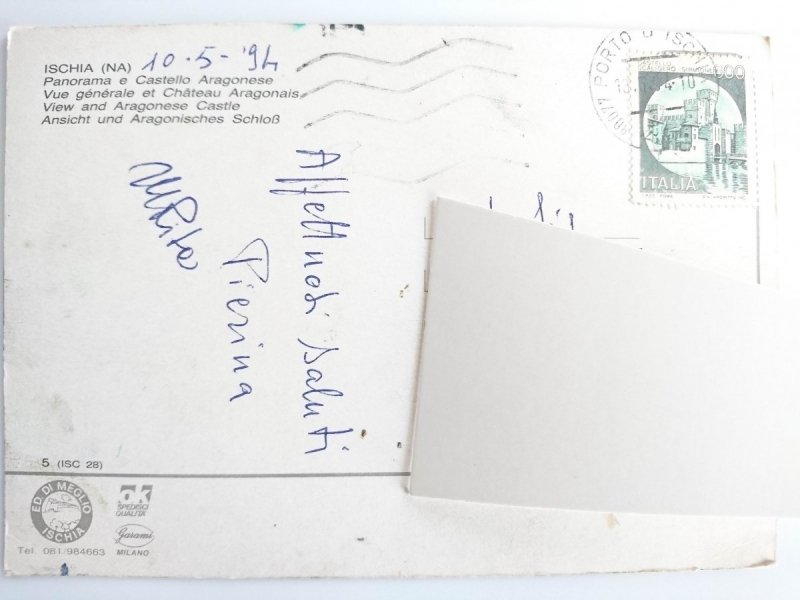 ISCHIA (NA) 10-5-'94
Panorama e Castello Aragonese
Vue générale et Château Aragonais
View and Aragonese Castle
Ansicht und Aragonisches Schloß
Affettuosi saluti
Pierina
MRita
5 (ISC 28)
ED. DI MEGLIO
ISCHIA
Tel. 081/984663
ok
SPEDISCI
QUALITÀ
Garami
MILANO
80077 PORTO D'ISCHIA
ITALIA